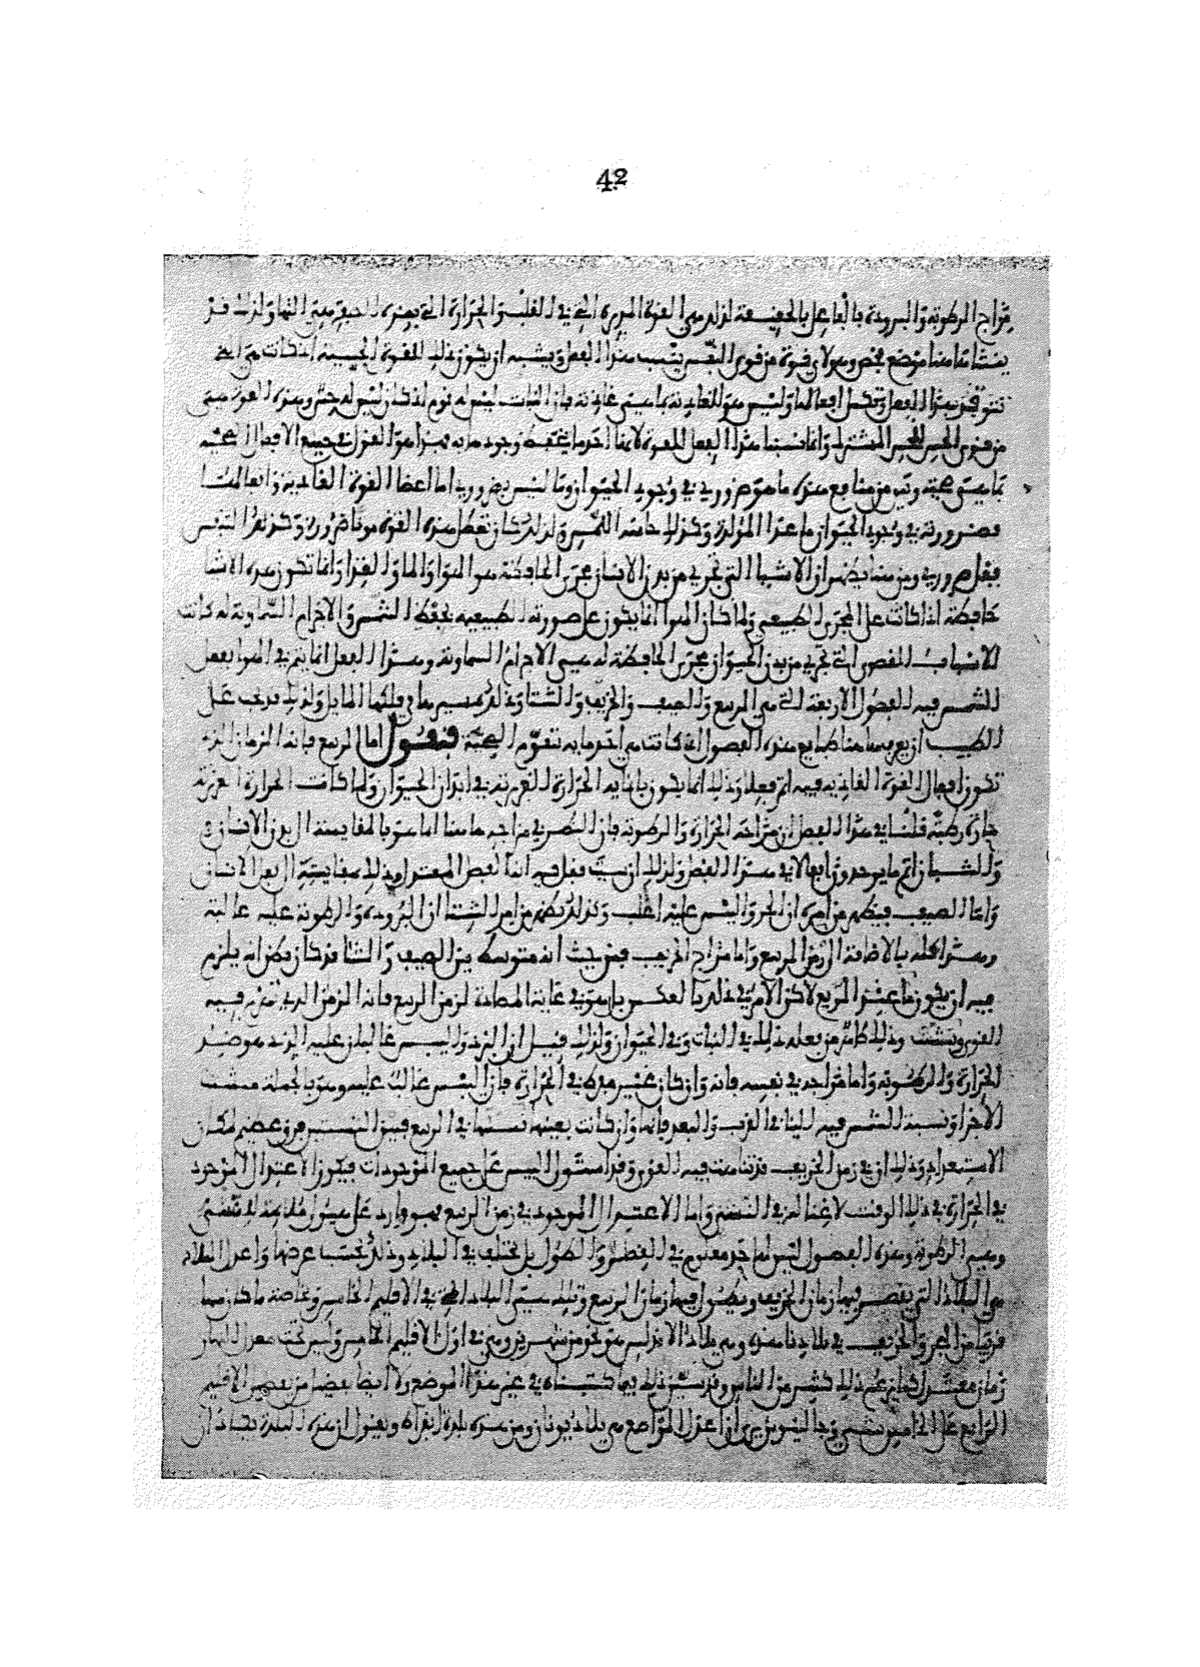 42
مزاج الرطوبة والبرودة فالفاعل بالحقيقة لذلك هي القوة المدبرة التي في القلب والحرارة التي بهذه الصفة هي النما ولذلك قد
ينشأ هاهنا موضع فحص وهو لأي قوة من قوى النفس ينسب هذا الفعل ويشبه أن يكون ذلك للقوة الحسية إذ كانت هي التي
تتوقف بهذا الفعل وتكمل أفعالها وليس هو للغاذية بما هي غاذية فإن النبات ليس له نوم إذ كان ليس له حس وهذه القوة هي
من قوى الحس المشترك وإنما نسبنا هذا الفعل للقوة لأنها أحد ما يحفظ وجودها به فهذا هو القول في جميع الأفعال الصحية
بما هي صحية وبين من منافع هذه ما هو ضروري في وجود الحيوان وما ليس بضروري أما أعضا القوة الغاذية وأفعالها
فضرورية في وجود الحيوان ما عدا المولدة وكذلك حاسة اللمس ولذلك كان تعطل هذه القوة موتا ضرورة وكذلك التنفس
فعل ضروري ومن هنا يظهر أن الأشيا التي تجري من بدن الإنسان مجرى الحافظة هو الهوا والما والغذا وإنما تكون هذه الأشيا
حافظة إذا كانت على المجرى الطبيعي ولما كان الهوا إنما يكون على صورته الطبيعية بحفظ الشمس والأجرام السماوية له كانت
الأسباب القصوى التي تجري من بدن الحيوان مجرى الحافظة له هي الأجرام السماوية وهذا الفعل إنما يتم في الهوا بفعل
الشمس فيه الفصول الأربعة التي هي الربيع والصيف والخريف والشتا وذلك بمسيرها في فلكها المايل ولذلك يجب على
الطبيب أن يعرف هاهنا طبايع هذه الفصول إذ كانت هي أحد ما به تتقوم الصحة فنقول أما الربيع فإنه الزمان الذي
تكون أفعال القوة الغاذية فيه أتم فعلا وذلك إنما يكون بإنماية الحرارة الغريزية في أبدان الحيوان ولما كانت الحرارة الغريزية
حارة رطبة قلنا في هذا الفصل إن مزاجه الحرارة والرطوبة فإن النظر في مزاجه هاهنا إنما هو بالمقايسة إلى بدن الإنسان
والشبان أتم ما يوجدون أفعالا في هذا الفصل ولذلك إن شيت فقل فيه إنه الفصل المعتدل وذلك بمقايسته إلى بدن الإنسان
وأما الصيف فيظهر من أمره أن الحر واليبس عليه أغلب وكذلك يظهر من أمر الشتا أن البرودة والرطوبة عليه غالبة
وهذا كله بالإضافة إلى زمن الربيع وأما مزاج الخريف فمن حيث أنه متوسط بين الصيف والشتا قد كان يظن أنه يلزم
فيه أن يكون زمان معتدلا كالربيع لاكن الأمر في ذلك بالعكس بل هو في غاية المضادة لزمن الربيع فإنه الزمن الذي تهرم فيه
القوى وتتشتت وذلك ظاهر من فعله ذلك في النبات وفي الحيوان ولذلك قيل إن البرد واليبس غالبان عليه البرد بعوض
الحرارة والرطوبة وأما مزاجه في نفسه فإنه وإن كان غير مفرط في الحرارة فإن اليبس غالب عليه وهو بالجملة مشتت
الأجزا ونسبة الشمس فيه إلينا في القرب والبعد فإنها وإن كانت بعينها نسبتها في الربيع فبين النسبتين فرق عظيم لمكان
الاستعداد وذلك أن في زمن الخريف قد تناهت فيه القوى وقد استولى اليبس على جميع الموجودات فيكون الاعتدال الموجود
في الحرارة في ذلك الوقت لا غنا له في النضج وأما الاعتدال الموجود في زمن الربيع فهو وارد على هيولى ملايمة للنضج
وهي الرطوبة وهذه الفصول ليس لها حد معلوم في القصر والطول بل تختلف في البلاد وذلك بحسب عرضها وأعدل البلاد
هي البلاد التي يقصر فيها زمان الخريف ويطول فيها زمان الربيع وتلك هي البلاد التي في الإقليم الخامس وخاصة ما كان منها
قريبا من البحر والخريف في بلادنا هذه وهي بلاد الأندلس هو نحو من شهرين وهي في أول الإقليم الخامس وليس تحت معدل النهار
زمان معتدل كما زعم ذلك كثير من الناس وقد تبين ذلك فيما كتبناه في غير هذا الموضع ولا أيضا بعضا من بعض الإقليم
الرابع على الخامس بشي وجالينوس يرى أن أعدل المواضع هي بلاد يونان ومن هذه بلدة أبقراط ويقول إن هذه البلدة يكاد أن